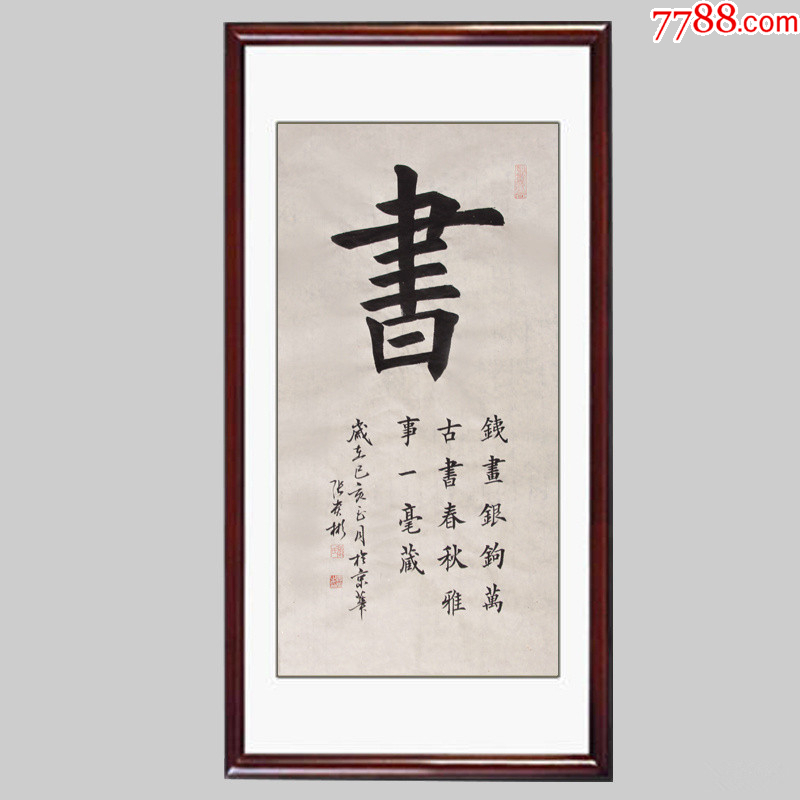 7788.com
書
銕畫銀鉤萬
古書春秋雅
事一毫藏
歲在己亥正月於京華
张贵彬